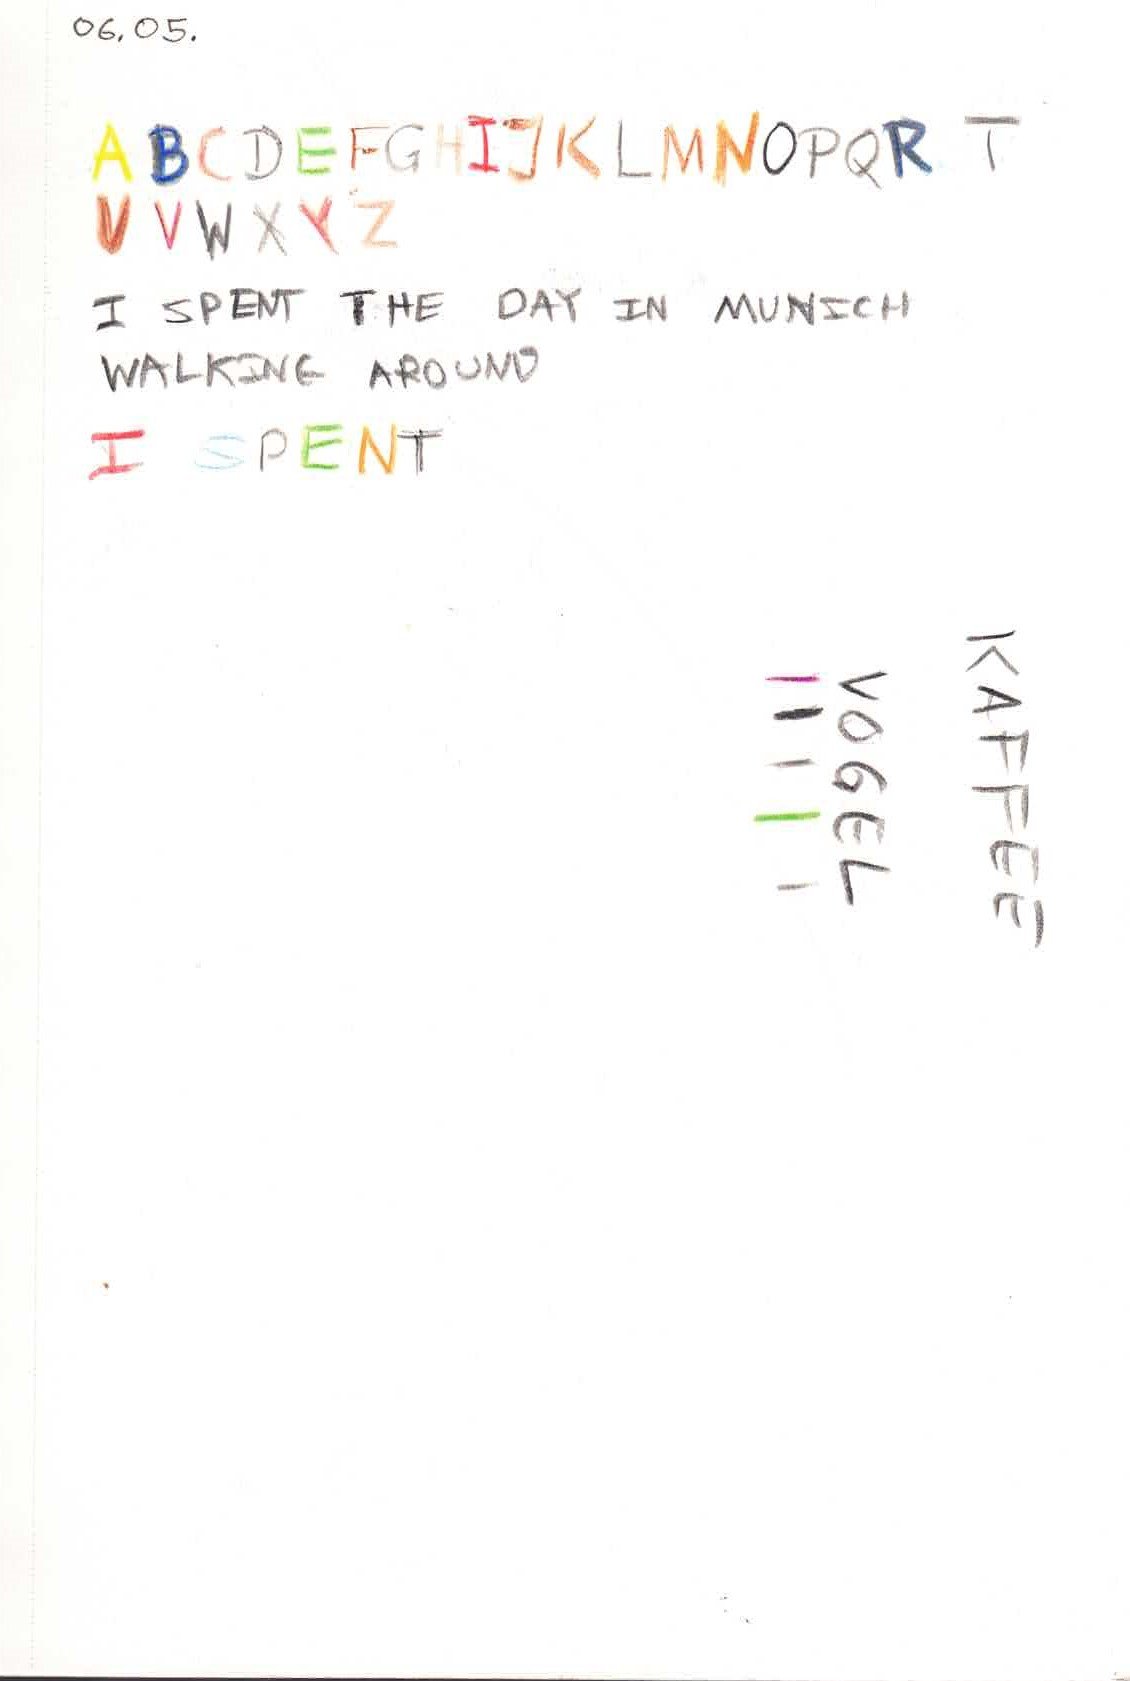 06.05.
A B C D E F G H I J K L M N O P Q R T
U V W X Y Z
I SPENT THE DAY IN MUNICH
WALKING AROUND
I SPENT
KAFFEE
VOGEL